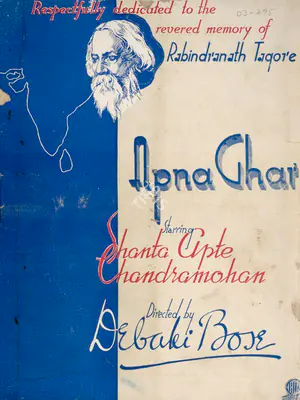 Respectfully dedicated to the
03-295
revered memory of
Rabindranath Tagore
Apna Ghar
Starring
Shanta Apte
Chandramohan
Directed by
Debaki Bose